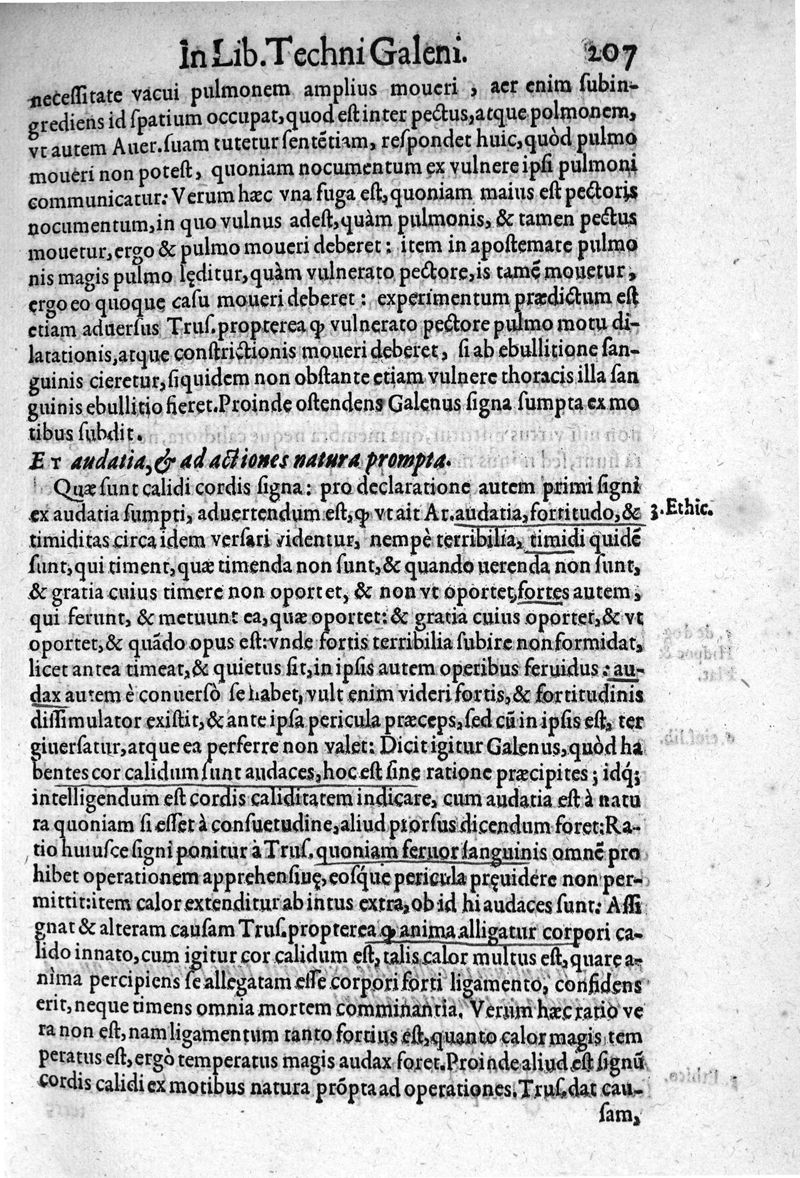 In Lib. Techni Galeni. 207
necessitate vacui pulmonem amplius moueri, aer enim subin-
grediens id spatium occupat, quod est inter pectus, atque polmonem,
vt autem Auer. suam tutetur sentẽtiam, respondet huic, quòd pulmo
moueri non potest, quoniam nocumentum ex vulnere ipsi pulmoni
communicatur: Verum hæc vna fuga est, quoniam maius est pectoris
nocumentum, in quo vulnus adest, quàm pulmonis, & tamen pectus
mouetur, ergo & pulmo moueri deberet: item in apostemate pulmo
nis magis pulmo lęditur, quàm vulnerato pectore, is tamẽ mouetur,
ergo eo quoque casu moueri deberet: experimentum prædictum est
etiam aduersus Trus. propterea ꝙ vulnerato pectore pulmo motu di-
latationis, atque constrictionis moueri deberet, si ab ebullitione san-
guinis cieretur, siquidem non obstante etiam vulnere thoracis illa san
guinis ebullitio fieret. Proinde ostendens Galenus signa sumpta ex mo
tibus subdit.
ET audatia, & ad actiones natura prompta.
Quæ sunt calidi cordis signa: pro declaratione autem primi signi
ex audatia sumpti, aduertendum est, ꝙ vt ait Ar. audatia, fortitudo, & 3. Ethic.
timiditas circa idem versari videntur, nempè terribilia, timidi quidẽ
sunt, qui timent, quæ timenda non sunt, & quando uerenda non sunt,
& gratia cuius timere non oportet, & non vt oportet, fortes autem,
qui ferunt, & metuunt ea, quæ oportet: & gratia cuius oportet, & vt
oportet, & quãdo opus est: vnde fortis terribilia subire non formidat,
licet antea timeat, & quietus sit, in ipsis autem operibus feruidus: au-
dax autem è conuersò se habet, vult enim videri fortis, & fortitudinis
dissimulator existit, & ante ipsa pericula præceps, sed cũ in ipsis est, ter
giuersatur, atque ea perferre non valet: Dicit igitur Galenus, quòd ha
bentes cor calidum sunt audaces, hoc est sine ratione præcipites; idq́;
intelligendum est cordis caliditatem indicare, cum audatia est à natu
ra quoniam si esset à consuetudine, aliud prorsus dicendum foret: Ra-
tio huiusce signi ponitur à Trus. quoniam feruor sanguinis omnẽ pro
hibet operationem apprehensiuę, eosque pericula pręuidere non per-
mittit: item calor extenditur ab intus extra, ob id hi audaces sunt: Assi
gnat & alteram causam Trus. propterea ꝙ anima alligatur corpori ca-
lido innato, cum igitur cor calidum est, talis calor multus est, quare a-
nima percipiens se allegatam esse corpori forti ligamento, confidens
erit, neque timens omnia mortem comminantia. Verum hæc ratio ve
ra non est, nam ligamentum tanto fortius est, quanto calor magis tem
peratus est, ergò temperatus magis audax foret. Proinde aliud est signũ
cordis calidi ex motibus natura prõpta ad operationes. Trus. dat cau-
sam,